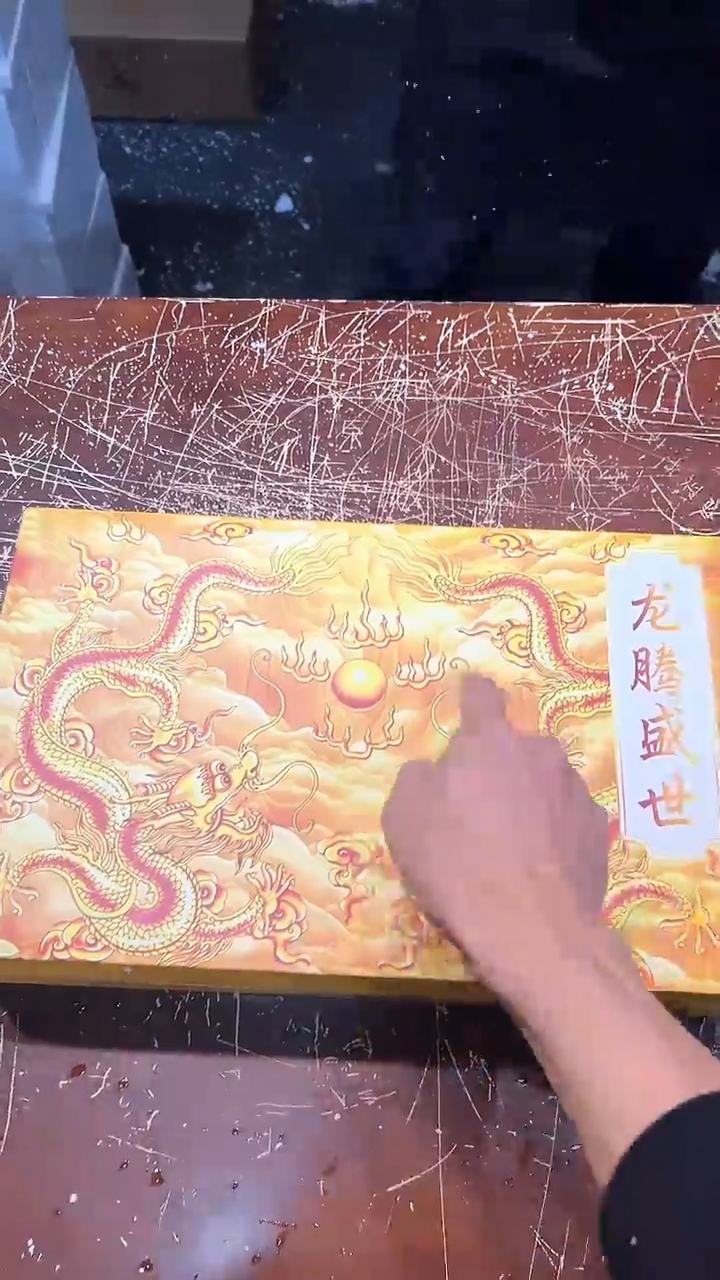 龙腾盛世